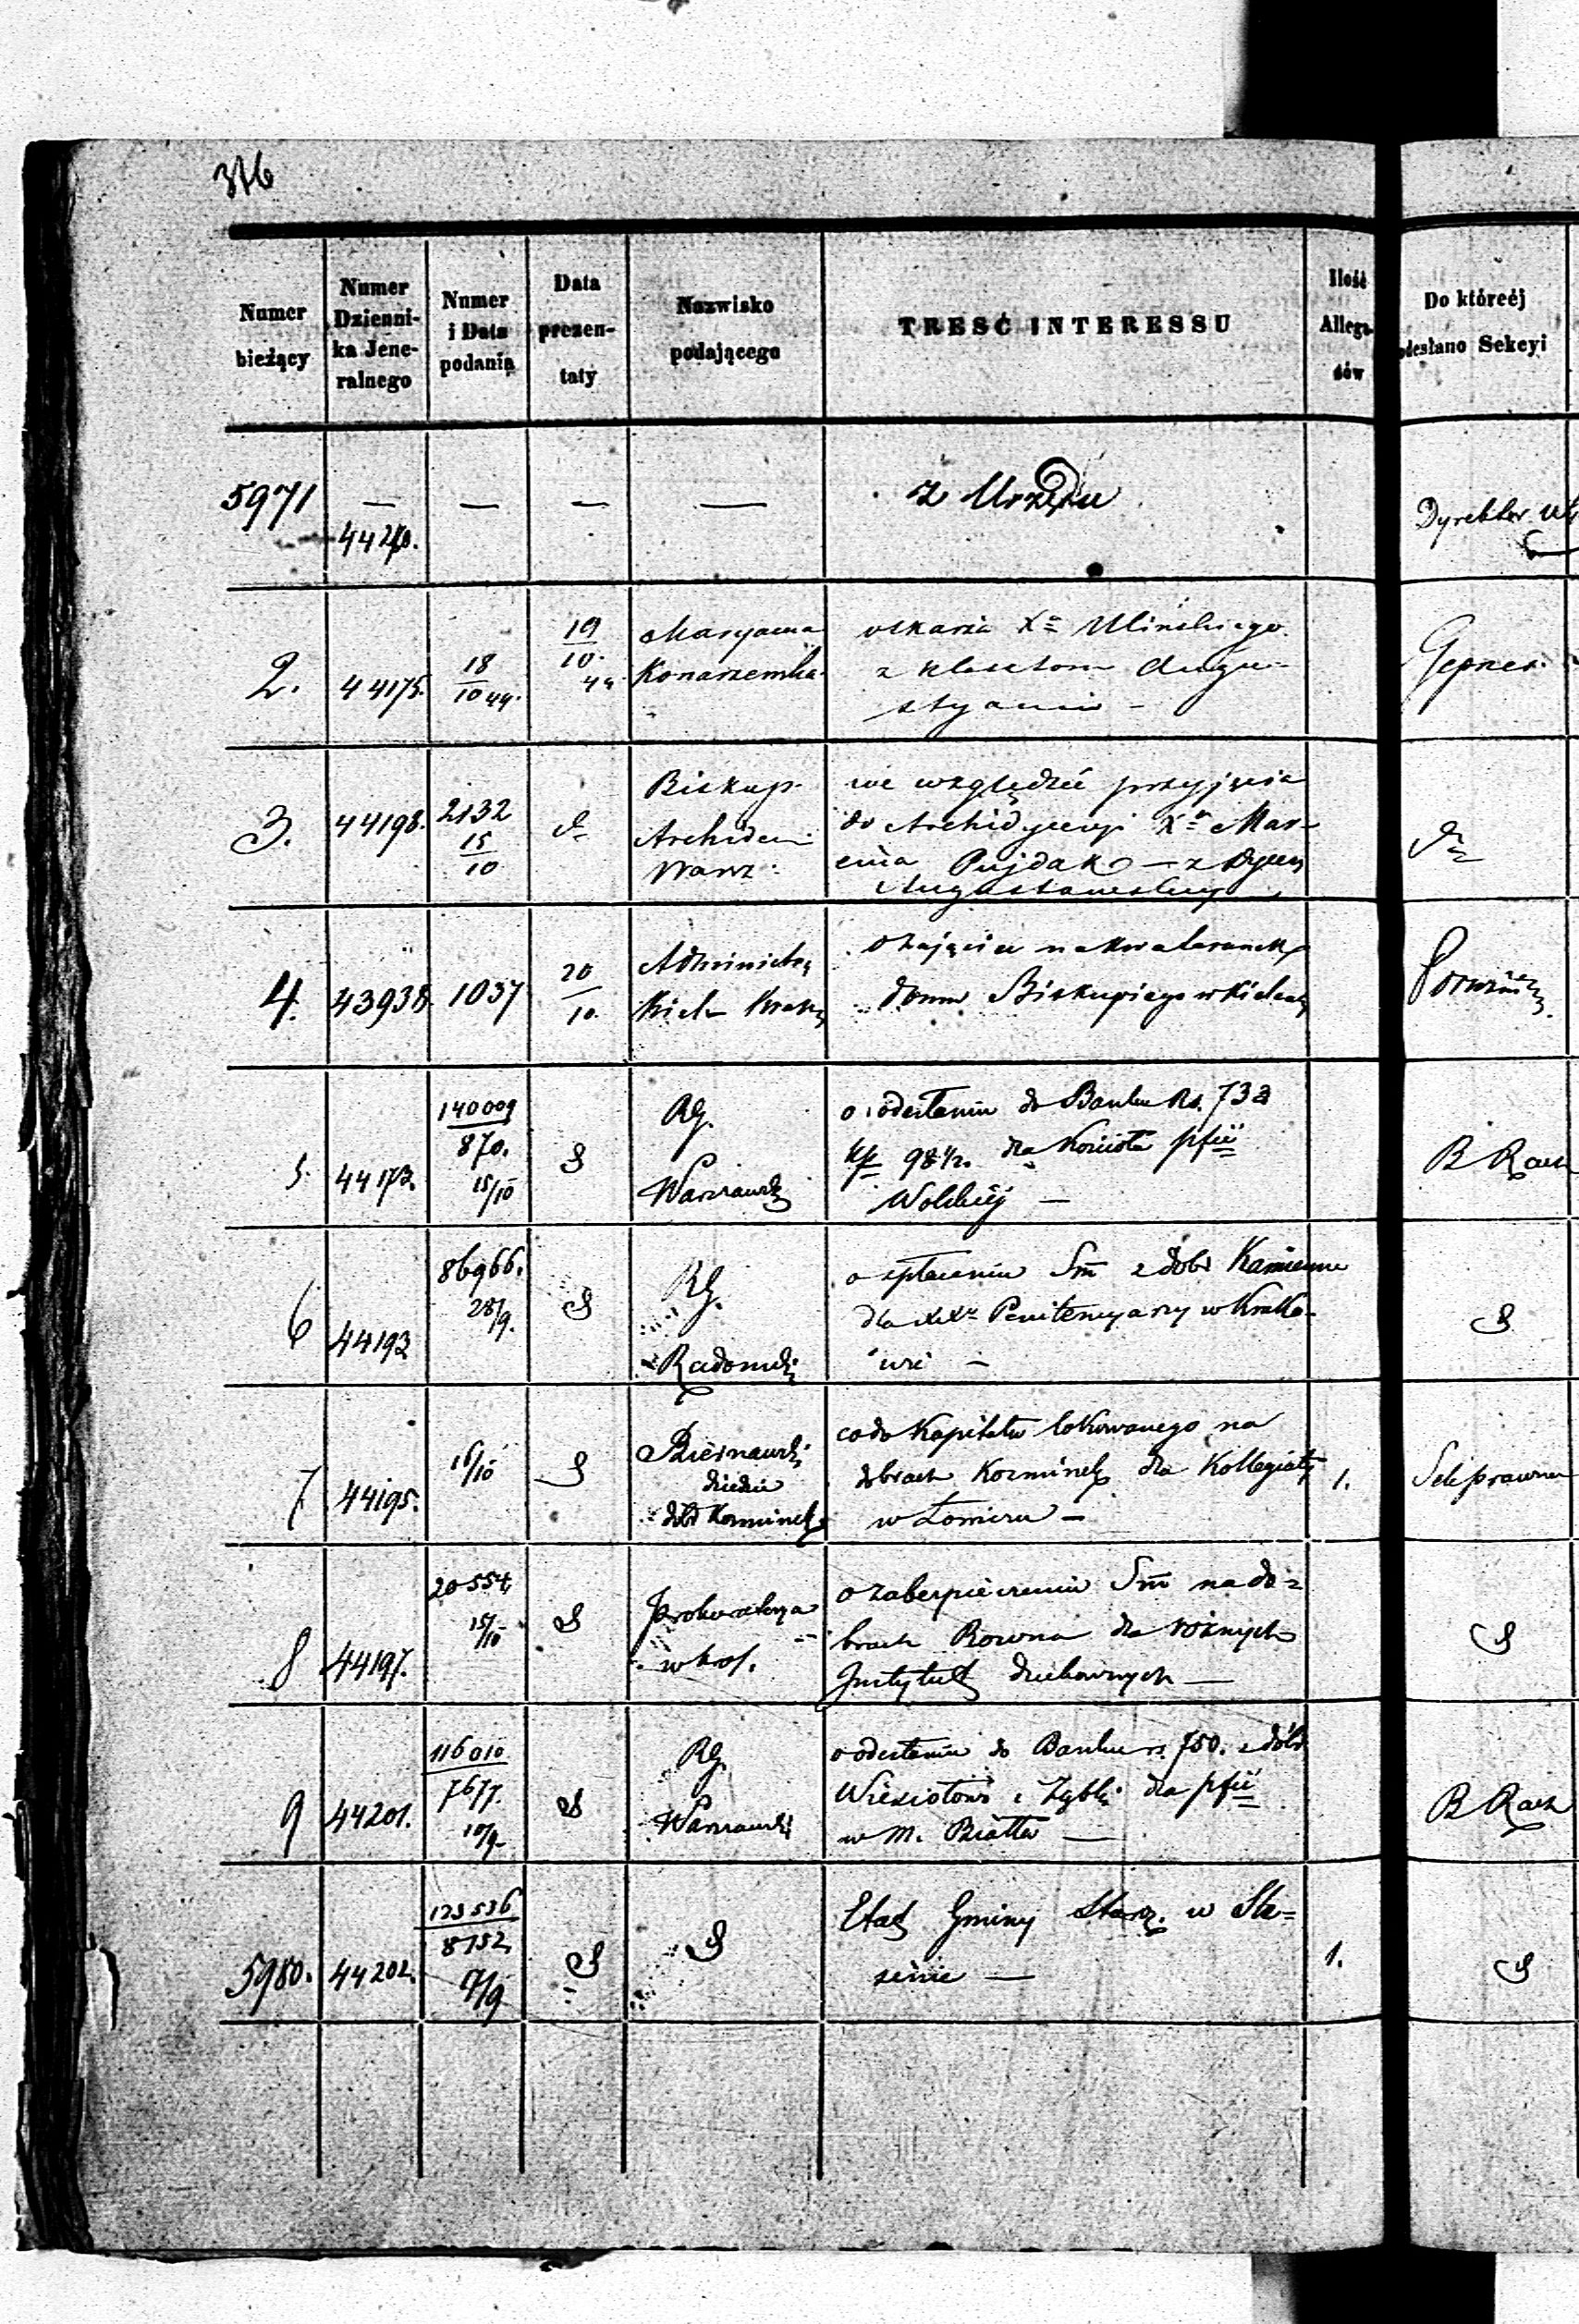 376
Numer bieżący
Numer Dzienni-ka Jene-ralnego
Numer i Data podania
Data prezen-taty
Nazwisko podającego
TREŚĆ INTERESSU
Ilość Allega-dów
Do któreéj odesłano Sekcyi
5971 — — — — z Urzędu Dyrektor
44240.
2. 44175. 18/10 44. 19/10 44 Maryanna Konarzewska
oskarża Xa Ulińskiego
z klasztoru Augu-
styanów —
Gepner
3. 44198. 2132 15/10 d Biskup Archidiec Warsz:
we względzie przyjęcia
do Archidyecezji Xa Mar-
cina Pujdak — z Dyecez
Augustowskiej
4. 43938 1037 20/10 Administr Kielc Krak
o zajęciu na kwaterunek
domu Biskupiego w Kielcach
5. 44173. 140009/870. 15/10 d RG. Warszawski
o odesłaniu do Banku Rs. 733
kp 98 1/2. dla Kościoła pfii
Wolskiéj —
B Rach
6 44193 86966. 28/9. d RG. Radomski
o spłaceniu Sm z dóbr Kamienna
dla XXw Penitencyarzy w Krako-
wie —
7 44195. 16/10 d Biernawski dziedzic dóbr Korminek
co do Kapitału lokowanego na
dobrach Korminek dla Kollegiaty
w Łowiczu —
1.
Sek prawna
8 44197. 20554, 15/10 d Prokuratorya w Król.
o zabezpieczeniu Sm na do=
brach Rowna dla różnych
Instytut duchownych —
9 44201. 116010/7677. 10/9 d RG. Warszawski
o odesłaniu do Banku rs. 750. z dóbr
dla pfii
w M. Biała —
B Rach
5980. 44202. 123536/8152, 17/9 d d
Etat Gminy Starz. w Sle=
sinie —
1.